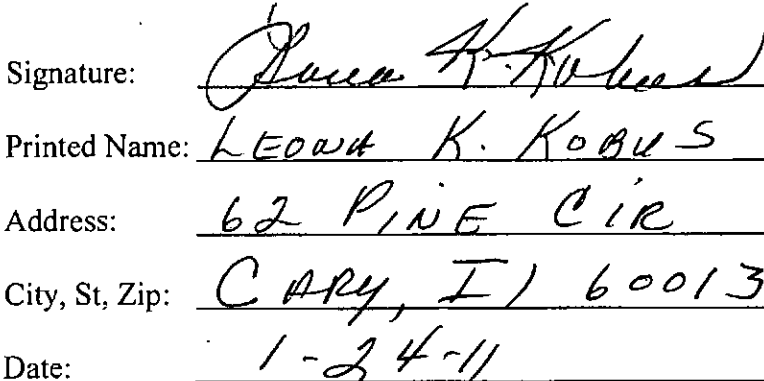 Signature: Leona K. Kobus
Printed Name: LEONA K. KOBUS
Address: 62 PINE CIR
City, St, Zip: CARY, Il 60013
Date: 1-24-11